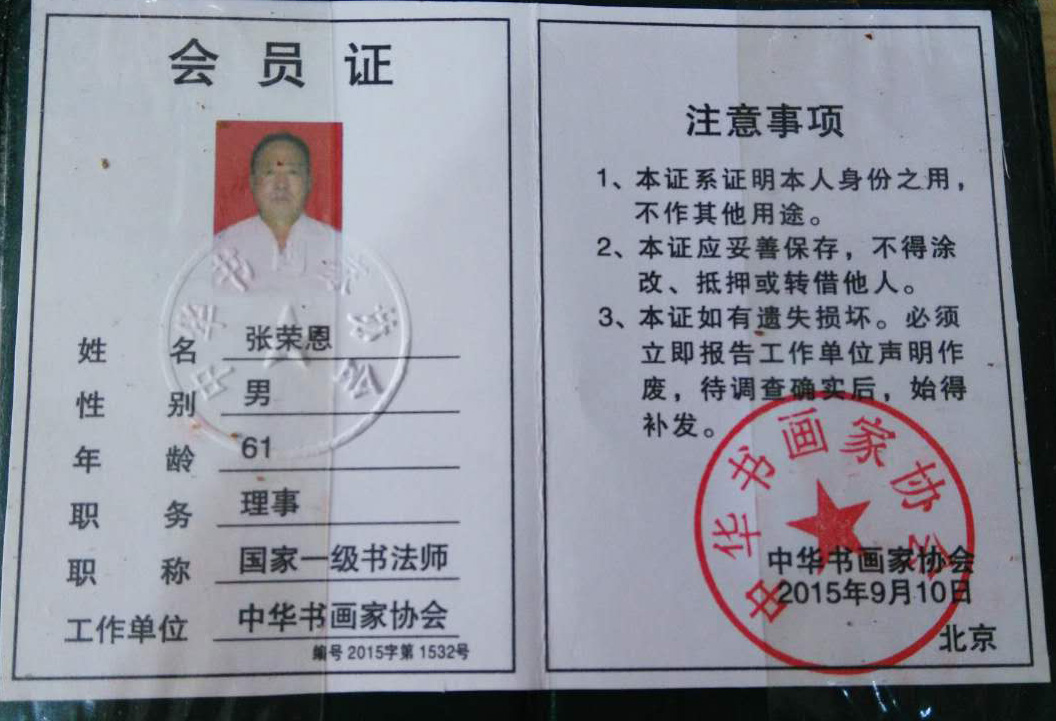 会员证
姓名 张荣恩
性别 男
年龄 61
职务 理事
职称 国家一级书法师
工作单位 中华书画家协会
编号 2015字第 1532号
中华书画家协会
注意事项
1、本证系证明本人身份之用，
不作其他用途。
2、本证应妥善保存，不得涂
改、抵押或转借他人。
3、本证如有遗失损坏。必须
立即报告工作单位声明作
废，待调查确实后，始得
补发。
中华书画家协会
中华书画家协会
2015年9月10日
北京